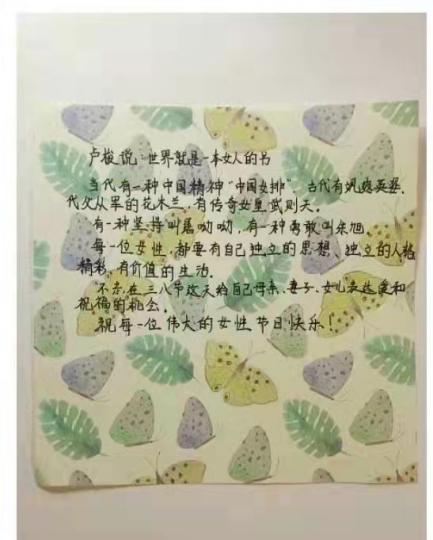 卢梭说：世界就是一本女人的书
当代有一种中国精神“中国女排”．古代有飒爽英姿．
代父从军的花木兰，有传奇女皇武则天。
有一种坚持叫屠呦呦，有一种勇敢叫朱旭．
每一位女性，都要有自己独立的思想，独立的人格
精彩，有价值的生活．
不忘在三八节这天给自己母亲、妻子、女儿表达爱和
祝福的机会．
祝每一位伟大的女性节日快乐！